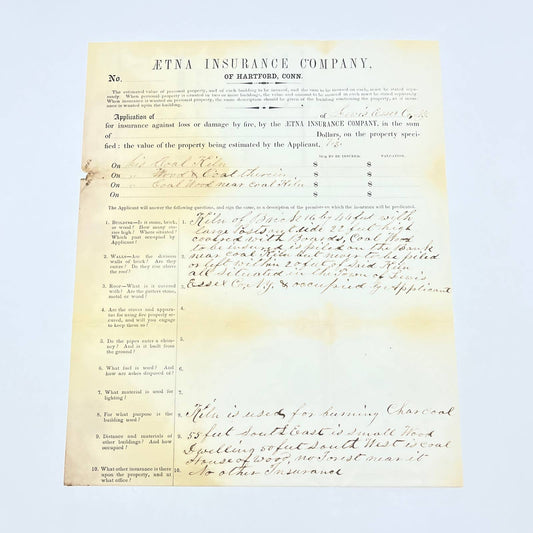 ÆTNA INSURANCE COMPANY,
OF HARTFORD, CONN.
No.
The estimated value of personal property, and of each building to be insured, and the sum to be insured on each, must be stated separately. When personal property is situated in two or more buildings, the value and amount to be insured in each, must be stated separately.
When insurance is wanted on personal property, the same description should be given of the building containing the property, as if insurance was wanted upon the building.
Application of of Lewis Essex Co.
for insurance against loss or damage by fire, by the ÆTNA INSURANCE COMPANY, in the sum
of Dollars, on the property speci-
fied: the value of the property being estimated by the Applicant, viz.
SUM TO BE INSURED. VALUATION.
On Coal Kiln $ $
On " Wood & Coal therein $ $
On " Coal Wood near Coal Kiln $ $
On $ $
The Applicant will answer the following questions, and sign the same, as a description of the premises on which the insurance will be predicated.
1. BUILDING—Is it stone, brick, or wood? How many stories high? Where situated? Which part occupied by Applicant?
1. Kiln of Brick with
large Posts 22 feet high
covered with Boards, Coal Wood
to be insured is piled on the Bank
near coal Kiln but never to be piled
or left within 20 feet of said Kiln
all situated in the Town of Lewis
Essex Co. N.y. & occupied by Applicant
2. WALLS—Are the division walls of brick? Are they entire? Do they rise above the roof?
2.
3. ROOF—What is it covered with? Are the gutters stone, metal or wood?
3.
4. Are the stoves and apparatus for using fire properly secured, and will you engage to keep them so?
4.
5. Do the pipes enter a chimney? And is it built from the ground?
5.
6. What fuel is used? And how are ashes disposed of?
6.
7. What material is used for lighting?
7.
8. For what purpose is the building used?
8. Kiln is used for burning Charcoal
9. Distance and materials of other buildings? And how occupied?
9. 55 feet South East is small Wood
Dwelling 50 feet South West is coal
House of wood, no Forest near it
10. What other insurance is there upon the property, and at what office?
10. No other Insurance